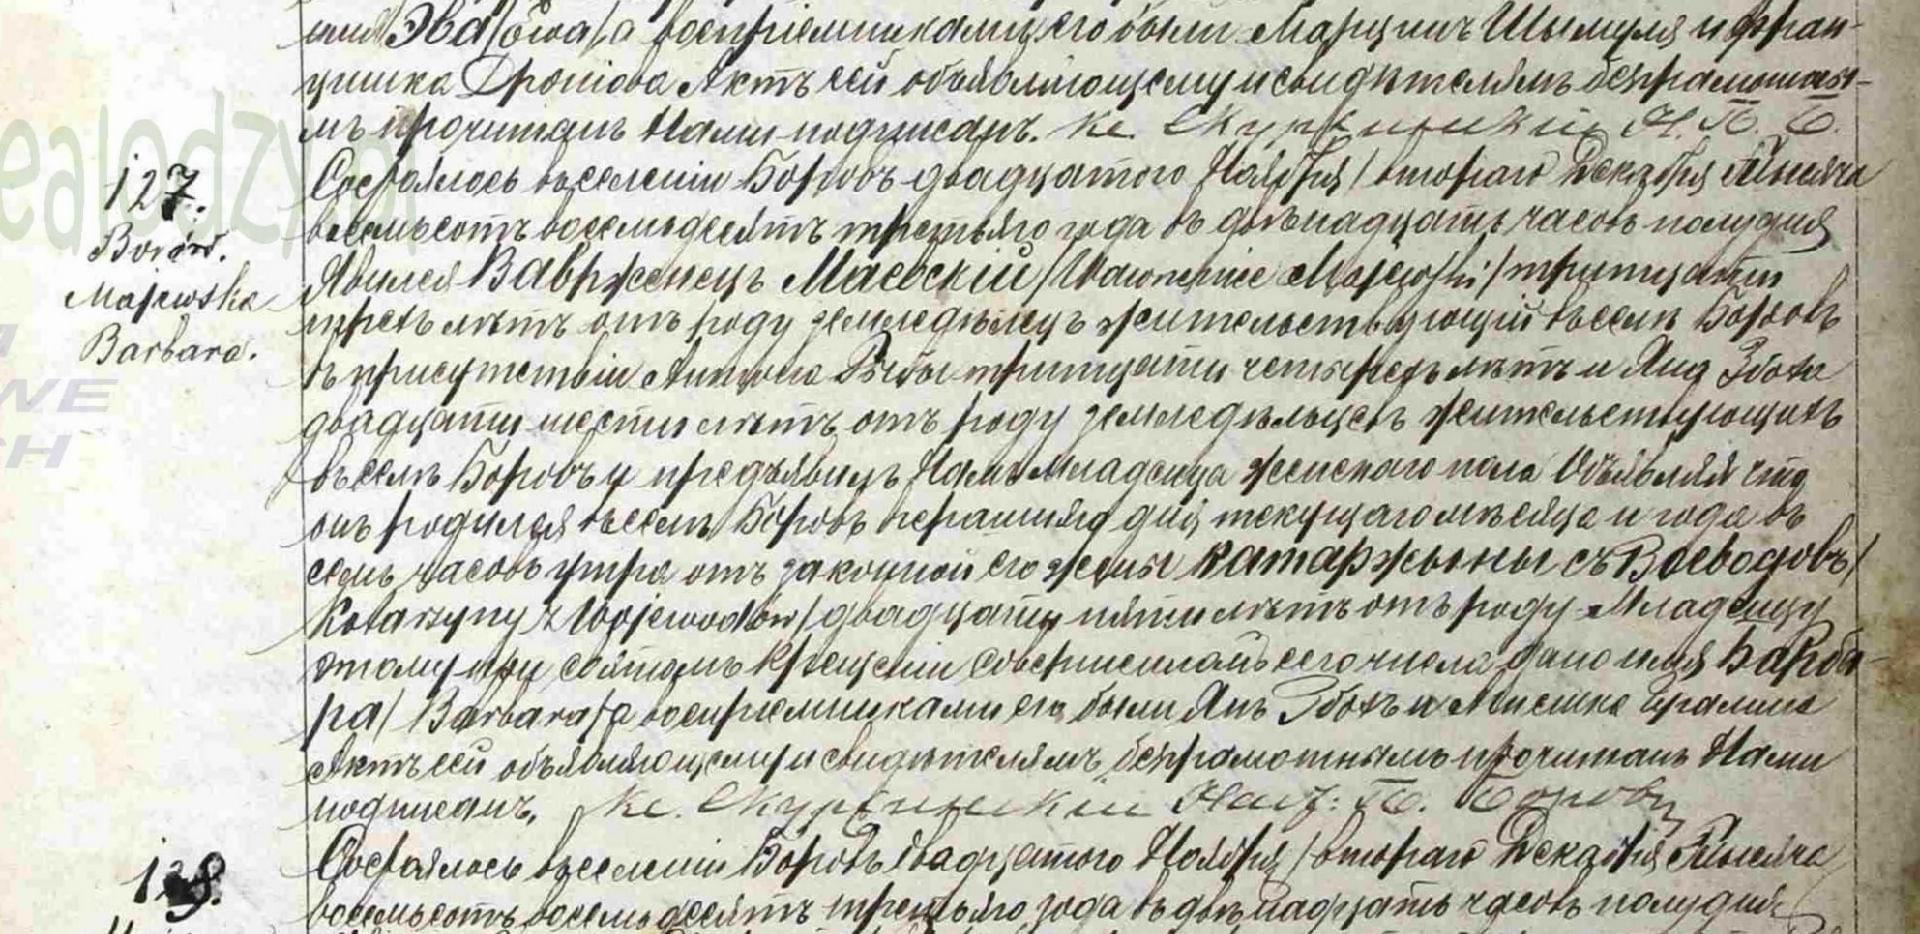 имя Эва /Ewa/ а воспріемниками его были Марцинъ Шымуля и Фран-
цишка Акть сей объявляющему и свидѣтелямъ безграмотны-
мъ прочитанъ Нами подписанъ. Кс. Н. П. Б.
127.
Borów.
Majewska
Barbara.
Состоялось въ селеніи Боровъ двадцатого Ноября /втораго Декабря Тысяча
восемьсотъ восемьдесятъ третьяго года въ двѣнадцать часовъ полудня
Явился Вавржинецъ Маевскій /Wawrzeniec Majewski/ тритцати
трехъ лѣтъ отъ роду земледѣлецъ жительствующій въ селѣ Боровъ
въ присутствіи Антона тритцати четырехъ лѣтъ и Яна
двадцати шести лѣтъ отъ роду земледѣльцевъ жительствующихъ
въ селѣ Боровъ и предъявилъ Намъ младенца женскаго пола Объявляя что
онъ родился въ селѣ Боровъ дня текущаго мѣсяца и года въ
семь часовъ утра отъ законной его жены Катаржыны съ Воеводовъ/
Katarzyny z Wojewodów/ двадцати пяти лѣтъ отъ роду Младенцу
этому при святомъ Крещеніи совершенномъ сего числа дано имя Барба-
ра/ Barbara/ а воспріемниками его были Янъ и
Актъ сей объявляющему и свидѣтелямъ безграмотнымъ прочитанъ Нами
подписанъ. Кс. П. Боровъ
128.
Состоялось въ селеніи Боровъ двадцатого Ноября /втораго Декабря Тысяча
восемьсотъ восемьдесятъ третьяго года въ двѣнадцать часовъ полудня